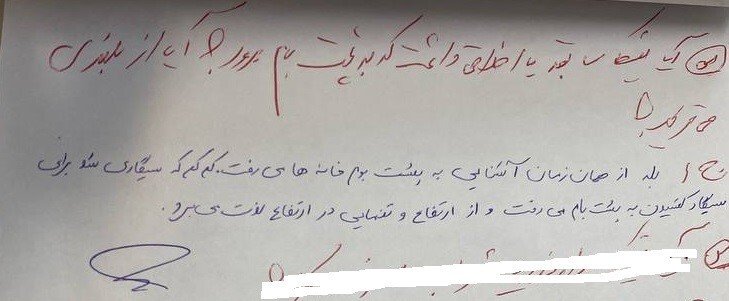 س) آیا نیکا سابقه یا اخلاقی داشت که به پشت بام برود؟ آیا از بلندی
می ترسید؟
ج) بله از همان زمان آشنایی به پشت بوم خانه ها می رفت. کم کم که سیگاری شد برای
سیگار کشیدن به پشت بام می رفت و از ارتفاع و تنهایی در ارتفاع لذت می برد.
س) آیا